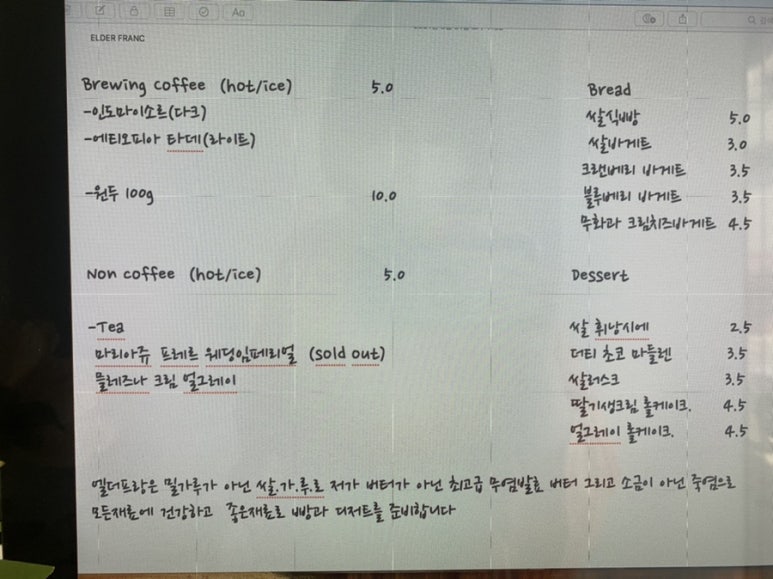 Aa
ELDER FRANC
Brewing coffee (hot/ice) 5.0
-인도마이소르(다크)
-에티오피아 타데(라이트)
-원두 100g 10.0
Non coffee (hot/ice) 5.0
-Tea
마리아쥬 프레르 웨딩임페리얼 (sold out)
믈레즈나 크림 얼그레이
Bread
쌀식빵 5.0
쌀바게트 3.0
크랜베리 바게트 3.5
블루베리 바게트 3.5
무화과 크림치즈바게트 4.5
Dessert
쌀 휘낭시에 2.5
더티 초코 마들렌 3.5
쌀러스크 3.5
딸기생크림 롤케이크. 4.5
얼그레이 롤케이크. 4.5
엘더프랑은 밀가루가 아닌 쌀.가.루.로 저가 버터가 아닌 최고급 무염발효 버터 그리고 소금이 아닌 죽염으로
모든재료에 건강하고 좋은재료로 빵과 디저트를 준비합니다